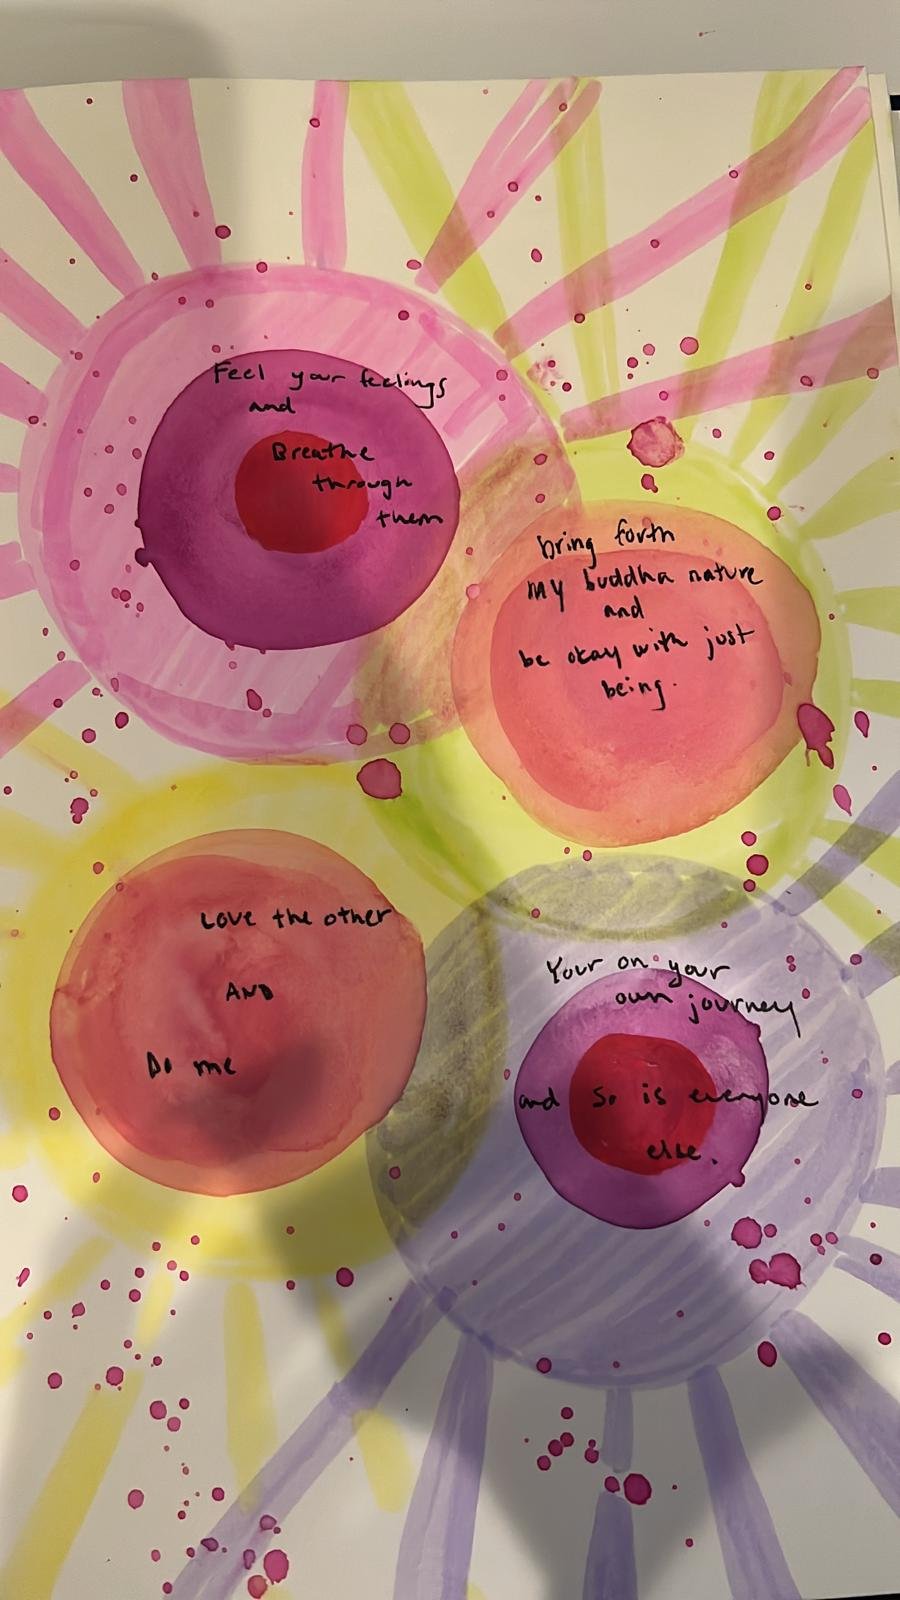 Feel your feelings
and
Breathe
through
them
bring forth
my buddha nature
and
be okay with just
being.
Love the other
AND
Do me
Your on your
own journey
and so is everyone
else.